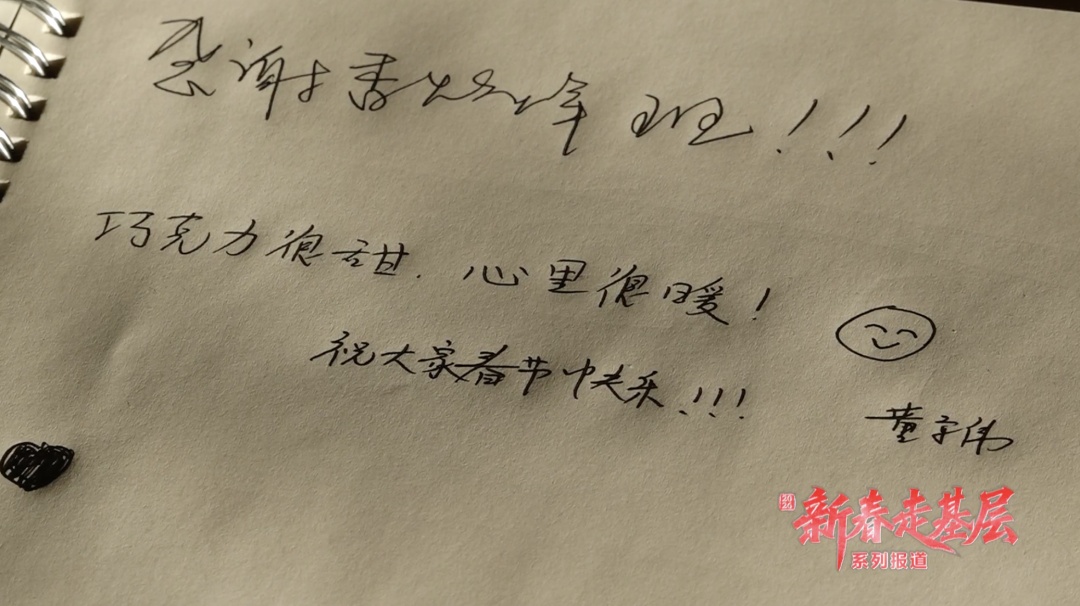 感谢李焕峰班！！！
巧克力很甜，心里很暖！
祝大家春节快乐！！！
董宇伟
新春走基层
系列报道